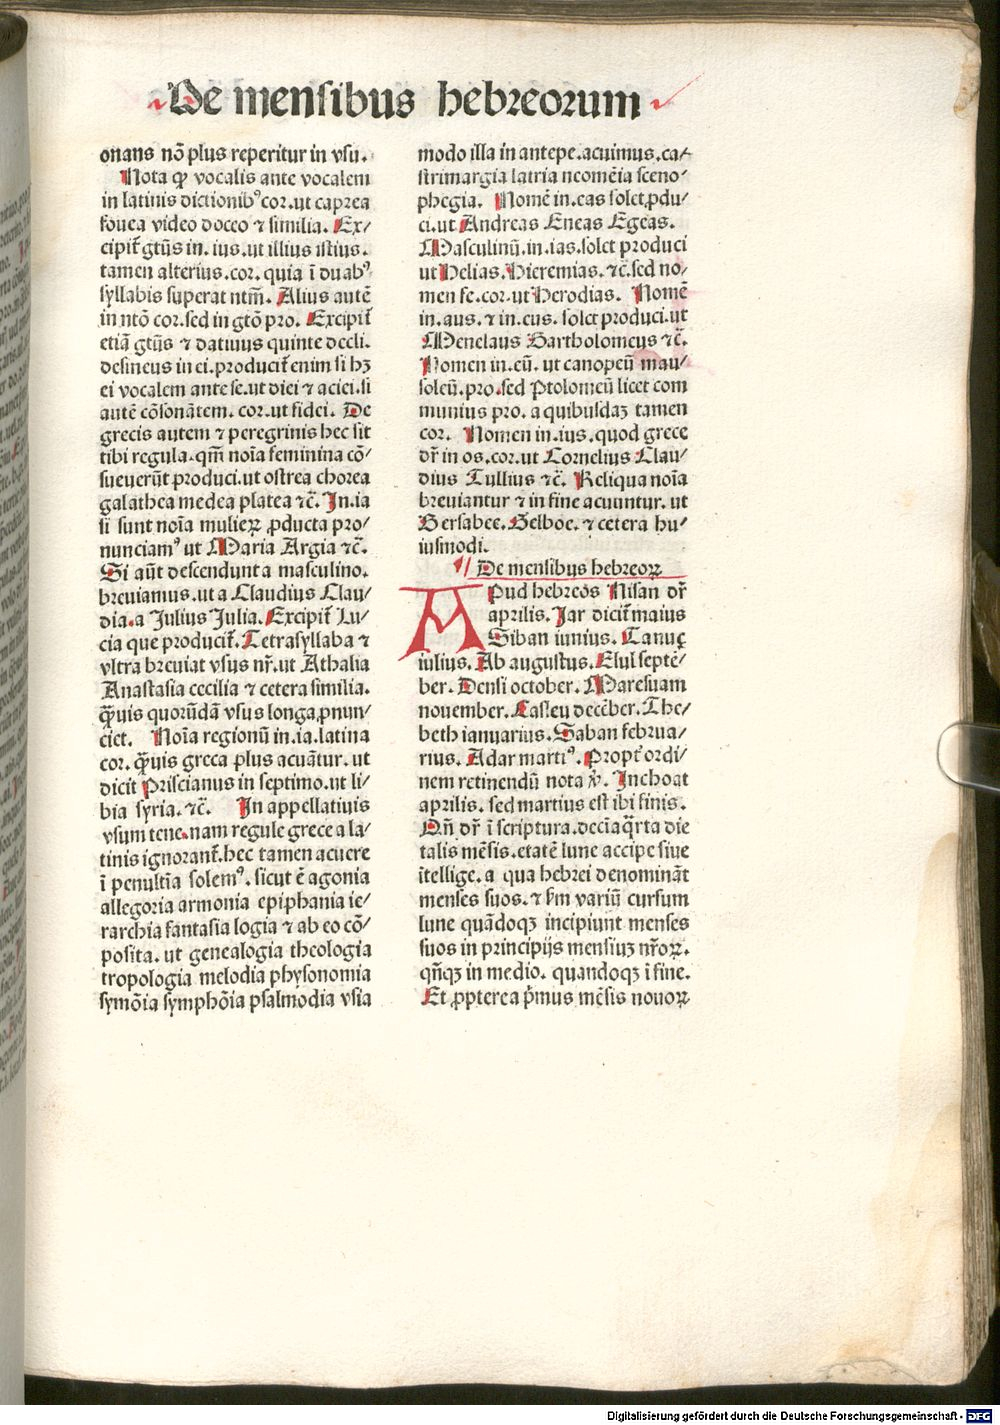 De mensibus hebreorum
onans nō plus reperitur in vsu.
Nota ꝙ vocalis ante vocalem
in latinis dictionibꝰ cor. ut caprea
fouea video doceo ⁊ similia. Ex/
cipit̃ gtũs in. ius. ut illius istius.
tamen alterius. cor. quia ī duabꝰ
syllabis superat ntm̃. Alius autē
in ntō cor. sed in gtō pro. Excipit̃
etiā gtũs ⁊ datiuus quinte decli.
desineus in ei. producit̃ enim si hꝫ
ei vocalem ante se. ut diei ⁊ aciei. si
autē cōsonātem. cor. ut fidei. De
grecis autem ⁊ peregrinis hec sit
tibi regula. qm̃ noīa feminina cō/
sueuerūt produci. ut ostrea chorea
galathea medea platea ⁊c̃. In. ia
si sunt noīa mulieꝝ ꝓducta pro/
nunciamꝰ ut Maria Argia ⁊c̃.
Si aũt descendunt a masculino.
breuiamus. ut a Claudius Clau/
dia. a Julius Julia. Excipit̃ Lu/
cia que producit̃. Tetrasyllaba ⁊
vltra breuiat vsus nr̃. ut Athalia
Anastasia cecilia ⁊ cetera similia.
q̃uis quorūdā vsus longa ꝓnun/
ciet. Noīa regionū in. ia. latina
cor. q̃uis greca plus acuātur. ut
dicit Priscianus in septimo. ut li/
bia syria. ⁊c̃. In appellatiuis
vsum tene. nam regule grece a la/
tinis ignorant̃. hec tamen acuere
ī penultīa solemꝰ. sicut ē agonia
allegoria armonia epiphania ie/
rarchia fantasia logia ⁊ ab eo cō/
posita. ut genealogia theologia
tropologia melodia physonomia
symōia symphōia psalmodia vsia
modo illa in antepe. acuimus. ca/
strimargia latria neomēia sceno/
phegia. Nomē in. eas solet ꝓdu/
ci. ut Andreas Eneas Egeas.
Masculinū. in. ias. solet produci
ut Helias. Hieremias. ⁊c̃. sed no/
men fe. cor. ut Herodias. Nomē
in. aus. ⁊ in. eus. solet produci. ut
Menelaus Bartholomeus ⁊c̃.
Nomen in. eū. ut canopeū mau/
soleū. pro. sed Ptolomeū licet com
munius pro. a quibusdaꝫ tamen
cor. Nomen in. ius. quod grece
dr̃ in os. cor. ut Cornelius Clau/
dius Tullius ⁊c̃. Reliqua noīa
breuiantur ⁊ in fine acuuntur. ut
Bersabee. Gelboe. ⁊ cetera hu/
iusmodi.
De mensibus hebreoꝝ
APud hebreos Nisan dr̃
aprilis. Jar dicit̃ maius
Siban iunius. Tanuꝫ
iulius. Ab augustus. Elul septē/
ber. Densi october. Maresuam
nouember. Casleu decēber. The/
beth ianuarius. Saban februa/
rius. Adar martiꝰ. Propt̃ ordi/
nem retinendū nota Inchoat
aprilis. sed martius est ibi finis.
Oñ dr̃ ī scriptura. decīa q̃rta die
talis mēsis. etatē lune accipe siue
ītellige. a qua hebrei denominãt
menses suos. ⁊ km variū cursum
lune quādoqꝫ incipiunt menses
suos in principijs mensiuꝫ nr̃oꝝ.
qñqꝫ in medio. quandoqꝫ ī fine.
Et ꝓpterea p̃mus mēsis nouoꝝ
Digitalisierung gefördert durch die Deutsche Forschungsgemeinschaft - DFG